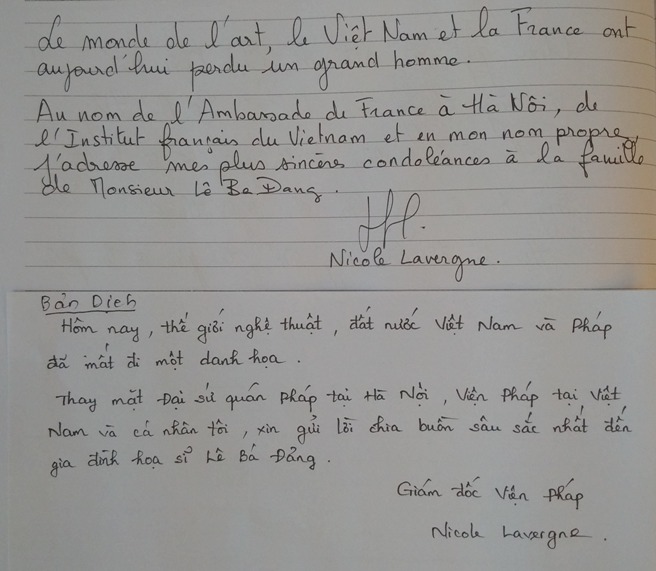 Le monde de l'art, le Việt Nam et la France ont
aujourd'hui perdu un grand homme.
Au nom de l'Ambassade de France à Hà Nôi, de
l'Institut français du Vietnam et en mon nom propre,
j'adresse mes plus sincères condoléances à la famille
de Monsieur Lê Ba Dang.
Nicole Lavergne.
Bản Dịch
Hôm nay, thế giới nghệ thuật, đất nước Việt Nam và Pháp
đã mất đi một danh họa.
Thay mặt Đại sứ quán Pháp tại Hà Nội, Viện Pháp tại Việt
Nam và cá nhân tôi, xin gửi lời chia buồn sâu sắc nhất đến
gia đình họa sĩ Lê Bá Đảng.
Giám đốc Viện Pháp
Nicole Lavergne.